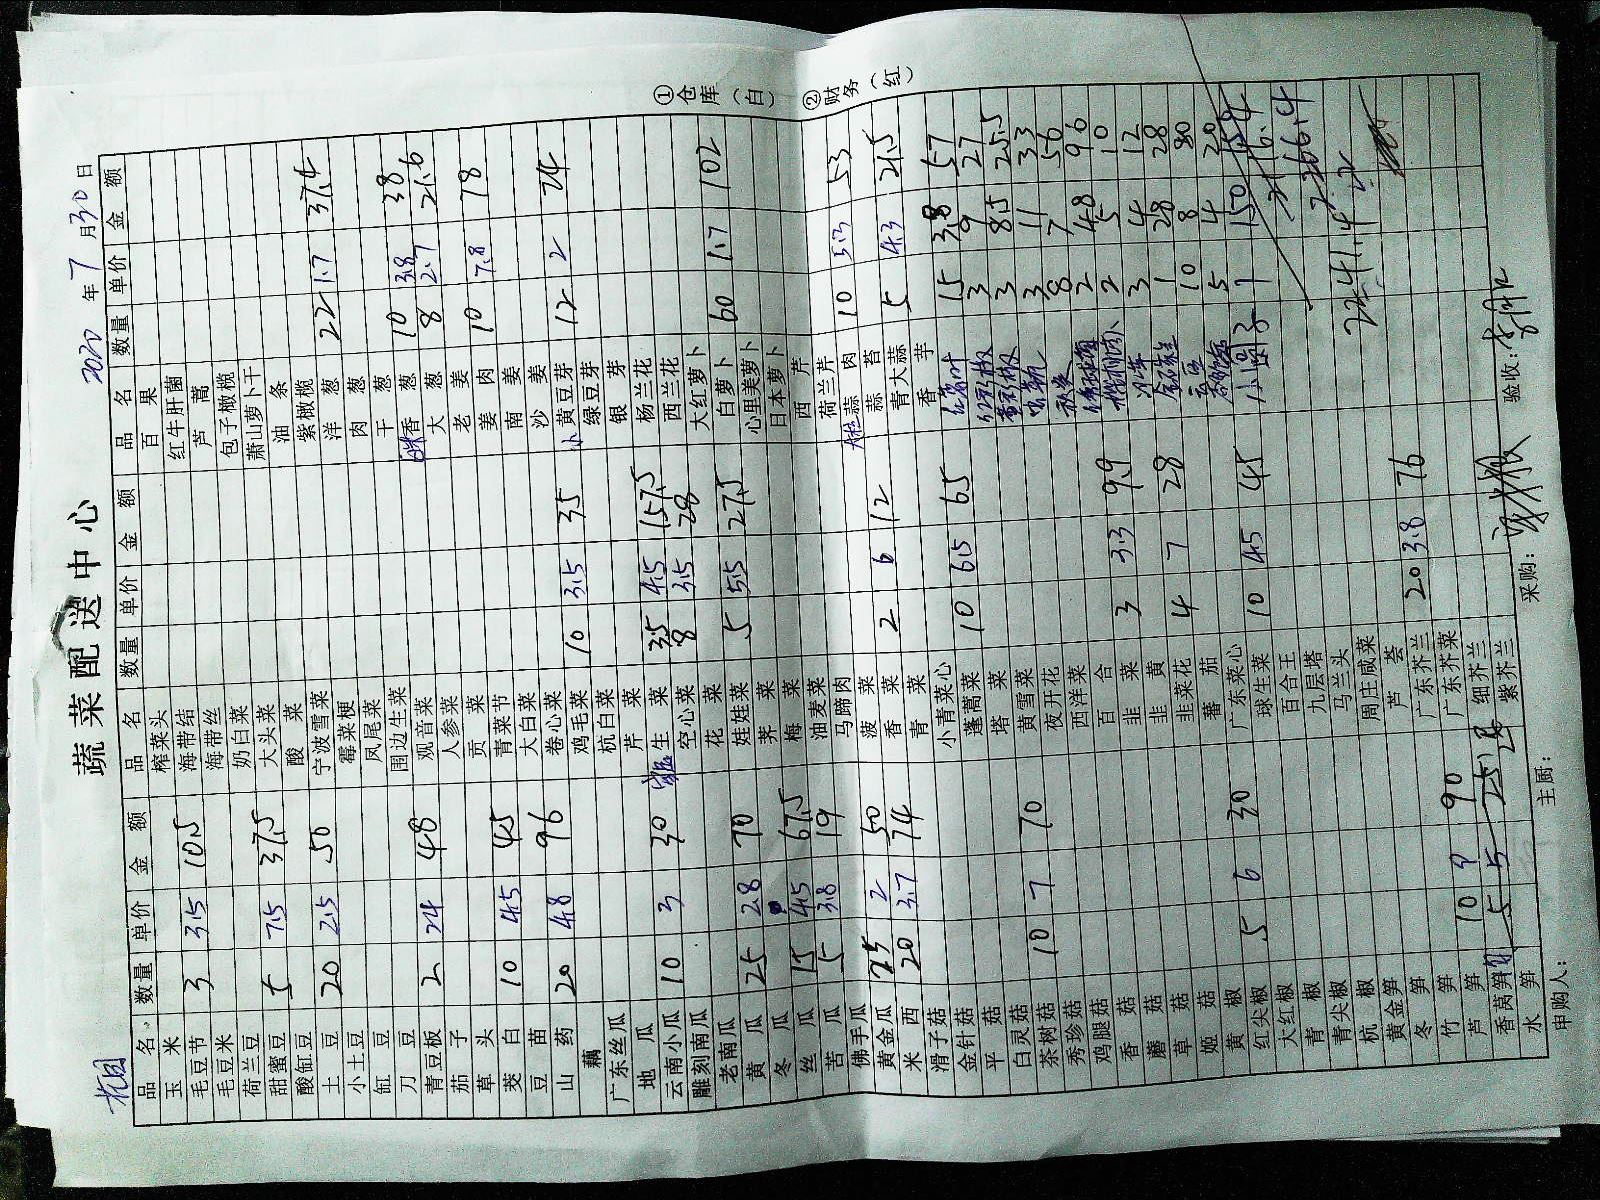 杭园
蔬菜配送中心
2020年7月30日
品名 数量 单价 金额 品名 数量 单价 金额 品名 数量 单价 金额
玉米 榨菜头 百果
毛豆节 3 3.5 10.5 海带结 红牛肝菌
毛豆米 海带丝 芦蒿
荷兰豆 奶白菜 包子橄榄
甜蜜豆 5 7.5 37.5 大头菜 萧山萝卜干
酸缸豆 酸菜 油条
土豆 20 2.5 50 宁波雪菜 紫橄榄
小土豆 霉菜梗 洋葱 22 1.7 37.4
缸豆 凤尾菜 肉葱
刀豆 围边生菜 干葱 10 3.8 38
青豆板 2 24 48 观音菜 香葱 8 2.7 21.6
茄子 人参菜 大葱
草头 贡菜 老姜 10 7.8 78
茭白 10 4.5 45 青菜节 姜肉
豆苗 大白菜 南姜
山药 20 4.8 96 卷心菜 沙姜
藕 鸡毛菜 10 3.5 35 小黄豆芽 12 2 24
广东丝瓜 杭白菜 绿豆芽
地瓜 芹菜 银芽
云南小瓜 10 3 30 生菜 35 4.5 157.5 杨兰花
雕刻南瓜 空心菜 8 3.5 28 西兰花
老南瓜 花菜 大红萝卜
黄瓜 25 2.8 70 娃娃菜 5 5.5 27.5 白萝卜 60 1.7 102
冬瓜 荠菜 心里美萝卜
丝瓜 15 4.5 67.5 梅菜 日本萝卜
苦瓜 5 3.8 19 油麦菜 西芹
佛手瓜 马蹄肉 荷兰芹
黄金瓜 25 2 50 菠菜 蒜肉 10 5.3 53
米西 20 3.7 74 香菜 2 6 12 蒜苔
滑子菇 青菜 青大蒜 5 4.3 21.5
金针菇 小青菜心 香芋
平菇 蓬蒿菜 10 6.5 65 15 3.8 57
白灵菇 塔菜 红彩椒 3 9 27
茶树菇 10 7 70 黄雪菜 黄彩椒 3 8.5 25.5
秀珍菇 夜开花 3 11 33
鸡腿菇 西洋菜 秋葵 8 7 56
香菇 百合 2 48 96
蘑菇 韭菜 3 3.3 9.9 2 5 10
草菇 韭黄 3 4 12
姬菇 韭菜花 4 7 28 1 28 28
黄椒 蕃茄 10 8 80
红尖椒 5 6 30 广东菜心 5 4 20
大红椒 球生菜 10 4.5 45 小圆子 1 150
青椒 百合王
青尖椒 九层塔
杭椒 马兰头 2241.4
黄金笋 周庄咸菜
冬笋 芦荟
竹笋 广东芥兰 20 3.8 76
芦笋 10 9 90 广东芥菜
香莴笋 5 5 25 细芥兰
水笋 紫芥兰
申购人： 主厨： 采购： 验收：
①仓库（白） ②财务（红）